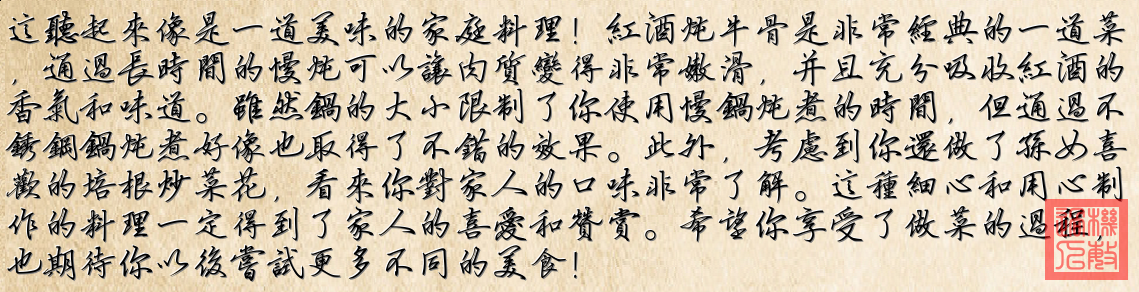 這聽起來像是一道美味的家庭料理！紅酒炖牛骨是非常經典的一道菜
，通過長時間的慢炖可以讓肉質變得非常嫩滑，并且充分吸收紅酒的
香氣和味道。雖然鍋的大小限制了你使用慢鍋炖煮的時間，但通過不
銹鋼鍋炖煮好像也取得了不錯的效果。此外，考慮到你還做了孫女喜
歡的培根炒菜花，看來你對家人的口味非常了解。這種細心和用心制
作的料理一定得到了家人的喜愛和贊賞。希望你享受了做菜的過程，
也期待你以後嘗試更多不同的美食！